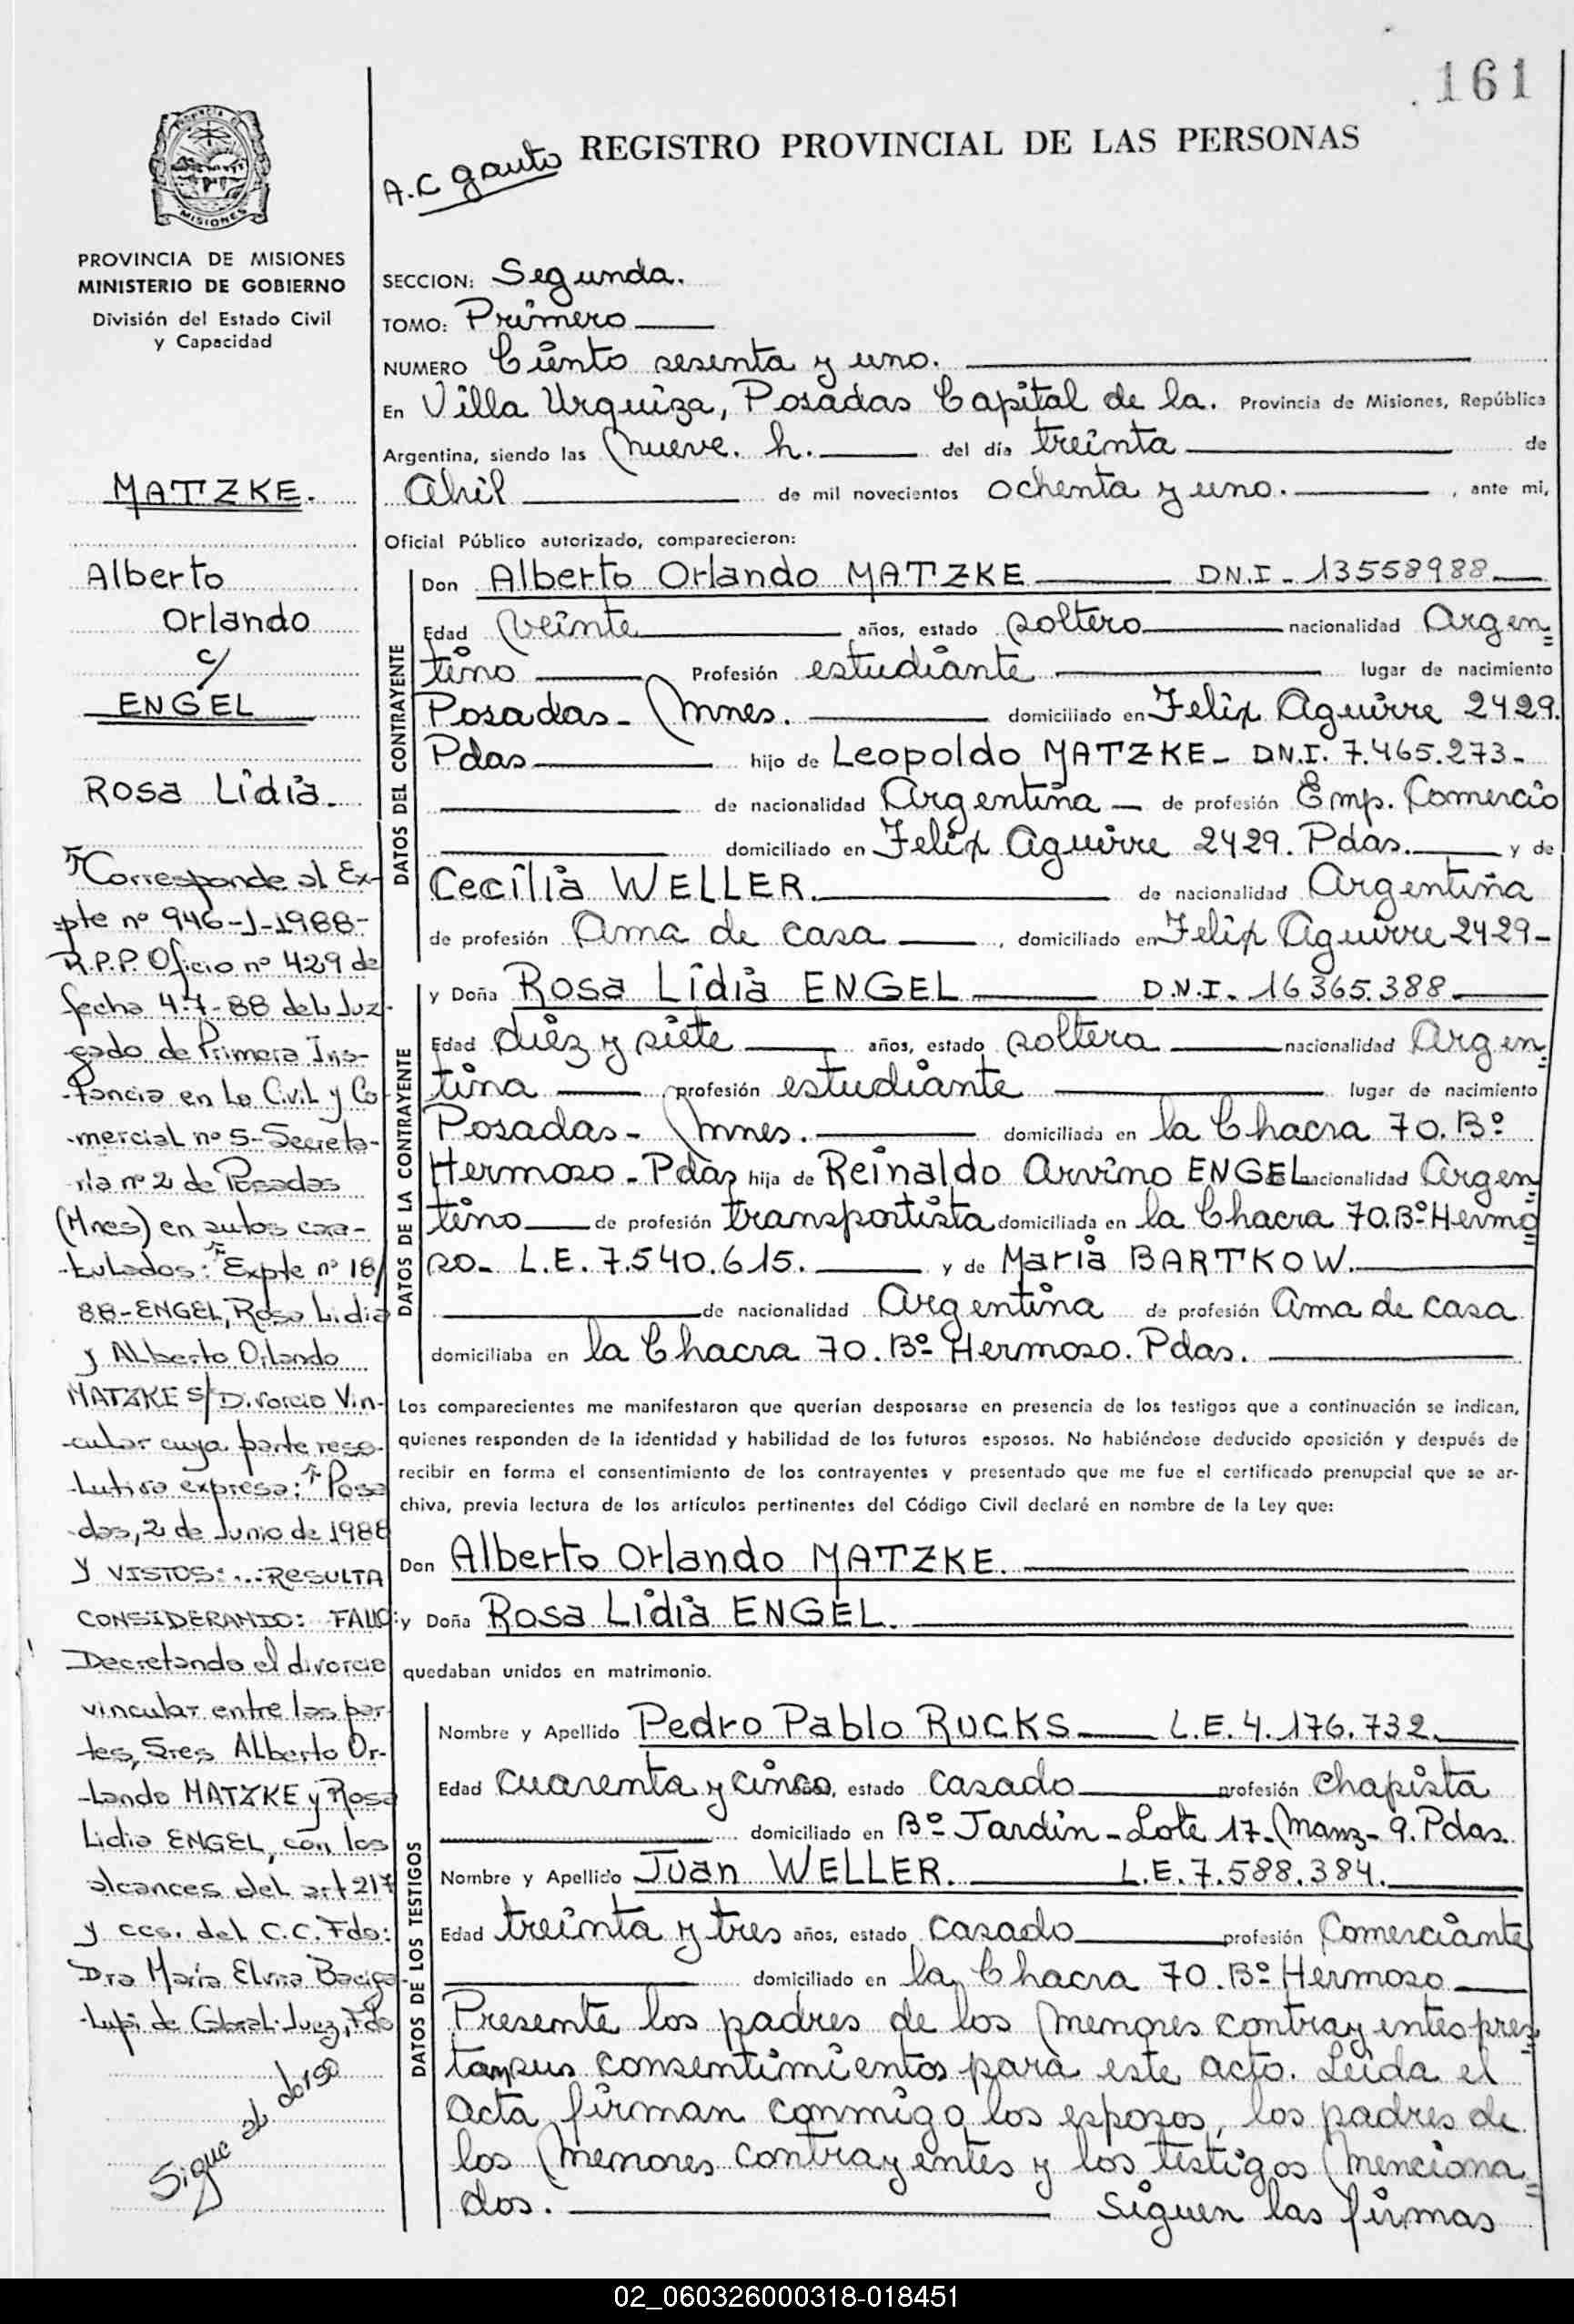 161
REGISTRO PROVINCIAL DE LAS PERSONAS
A.C gauto
MISIONES
PROVINCIA DE MISIONES
MINISTERIO DE GOBIERNO
División del Estado Civil
y Capacidad
MATZKE.
Alberto
Orlando
c/
ENGEL
Rosa Lidia.
"Corresponde al Ex-
pte nº 946-J-1988-
R.P.P. Oficio nº 429 de
fecha 4-7-88 del Juz-
gado de Primera Ins-
tancia en Lo Civil y Co
-mercial nº 5-Secreta-
ria nº 2 de Posadas
(Mnes) en autos cara-
-tulados: "Expte nº 18/
88-ENGEL, Rosa Lidia
y Alberto Orlando
MATZKE S/Divorcio Vin-
-cular cuya parte reso-
-lutiva expresa: "Posa
-das, 2 de Junio de 1988
Y VISTOS:...RESULTA
CONSIDERANDO: FALLO:
Decretando el divorcio
vincular entre las par-
tes, Sres Alberto Or-
-lando MATZKE y Rosa
Lidia ENGEL, con los
alcances del art 217
y ccs. del C.C. Fdo:
Dra María Elvira Baciga-
-lupi de Cabral-Juez, Fdo
Sigue al dorso
SECCION: Segunda.
TOMO: Primero
NUMERO Ciento sesenta y uno.
En Villa Urquiza, Posadas Capital de la. Provincia de Misiones, República
Argentina, siendo las nueve. h. del día treinta de
Abril de mil novecientos ochenta y uno. , ante mi,
Oficial Público autorizado, comparecieron:
DATOS DEL CONTRAYENTE
Don Alberto Orlando MATZKE D.N.I - 13558988
Edad veinte años, estado soltero nacionalidad Argen=
tino Profesión estudiante lugar de nacimiento
Posadas- Mnes. domiciliado en Felix Aguirre 2429.
Pdas hijo de Leopoldo MATZKE- D.N.I. 7.465.273-
de nacionalidad Argentina de profesión Emp. Comercio
domiciliado en Felix Aguirre 2429. Pdas. y de
Cecilia WELLER. de nacionalidad Argentina
de profesión Ama de casa , domiciliado en Felix Aguirre 2429-
DATOS DE LA CONTRAYENTE
y Doña Rosa Lidia ENGEL D.N.I. 16365.388
Edad diez y siete años, estado soltera nacionalidad Argen=
tina profesión estudiante lugar de nacimiento
Posadas- Mnes. domiciliada en la Chacra 70. Bº
Hermoso - Pdas hija de Reinaldo Arvino ENGEL nacionalidad Argen=
tino de profesión transportista domiciliada en la Chacra 70. Bº Hermo=
so- L.E. 7.540.615. y de Maria BARTKOW.
de nacionalidad Argentina de profesión Ama de casa
domiciliaba en la Chacra 70. Bº Hermoso. Pdas.
Los comparecientes me manifestaron que querían desposarse en presencia de los testigos que a continuación se indican,
quienes responden de la identidad y habilidad de los futuros esposos. No habiéndose deducido oposición y después de
recibir en forma el consentimiento de los contrayentes y presentado que me fue el certificado prenupcial que se ar-
chiva, previa lectura de los artículos pertinentes del Código Civil declaré en nombre de la Ley que:
Don Alberto Orlando MATZKE.
y Doña Rosa Lidia ENGEL.
quedaban unidos en matrimonio.
DATOS DE LOS TESTIGOS
Nombre y Apellido Pedro Pablo RUCKS L.E. 4.176.732.
Edad cuarenta y cinco, estado casado profesión chapista
domiciliado en Bº Jardin - Lote 17- Manz- 9. Pdas.
Nombre y Apellido Juan WELLER. L.E. 7.588.384.
Edad treinta y tres años, estado casado profesión Comerciante
domiciliado en la Chacra 70. Bº Hermoso
Presente los padres de los menores contrayentes pres=
tan sus consentimientos para este acto. Leida el
acta firman conmigo los esposos, los padres de
los menores contrayentes y los testigos menciona=
dos. Siguen las firmas
02_060326000318-018451